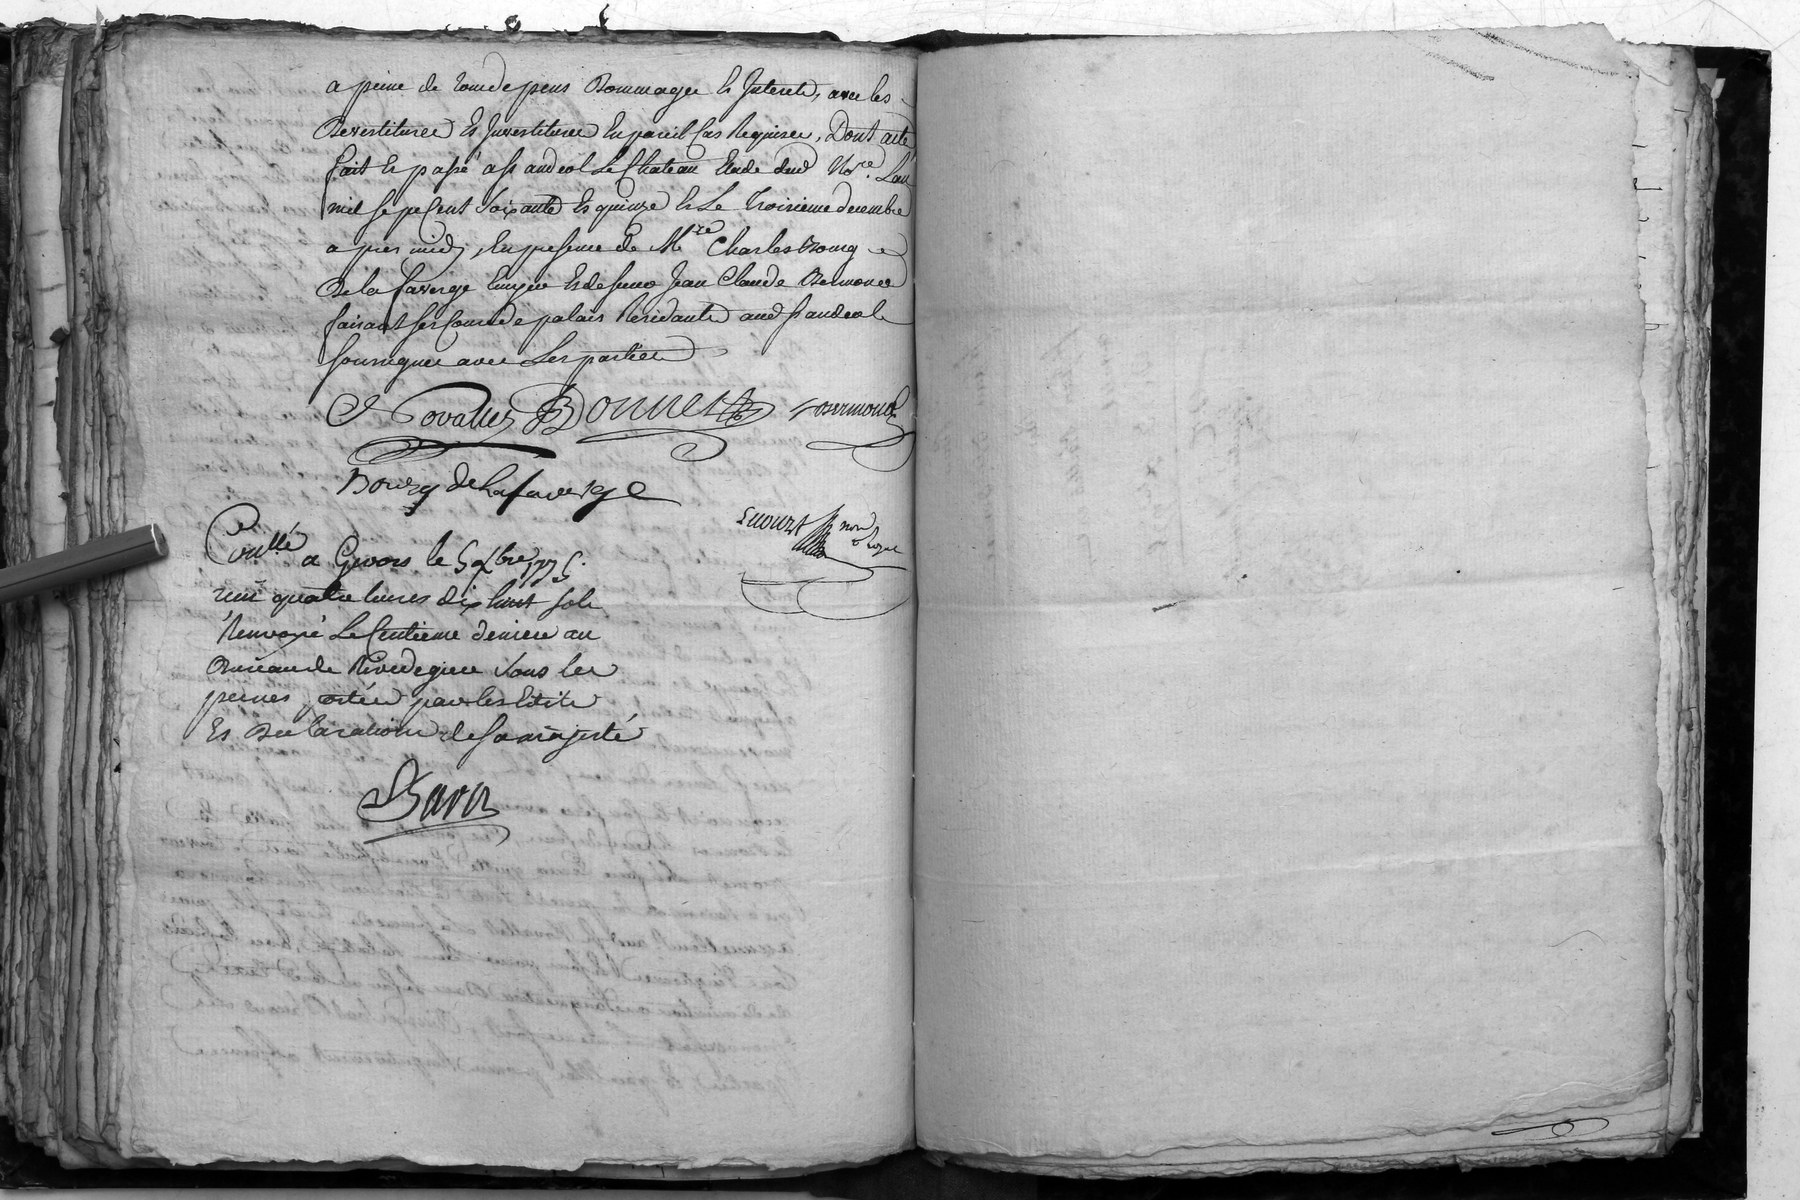 a peine de tous depens Dommages et Interets, avec les
Devestitures et Investitures En pareil Cas Requises, Dont acte
fait et passé a st andeol Le Chateau Etude dud. No.re Lan
mil sept Cent soixante et quinze et Le troisieme decembre
apres midy, En presence de M.re Charles Bourg
De la faverge Emvin et de sieur Jean Claude Bermond
faisant ses Cours de palais Residants aud. st andeol
soussignes avec Les parties
Novallet Bonnet Bermond
Bourg De Lafaverge
Enouvt no.re Royal
Con.llé a Givors le 5 xbre 1775.
reçu quatre livres dix huit sols
Renvoyé Le Centieme denier au
Bureau de Rivedegier sous les
peines portées par les Edits
Et Declarations de sa majesté
Baron